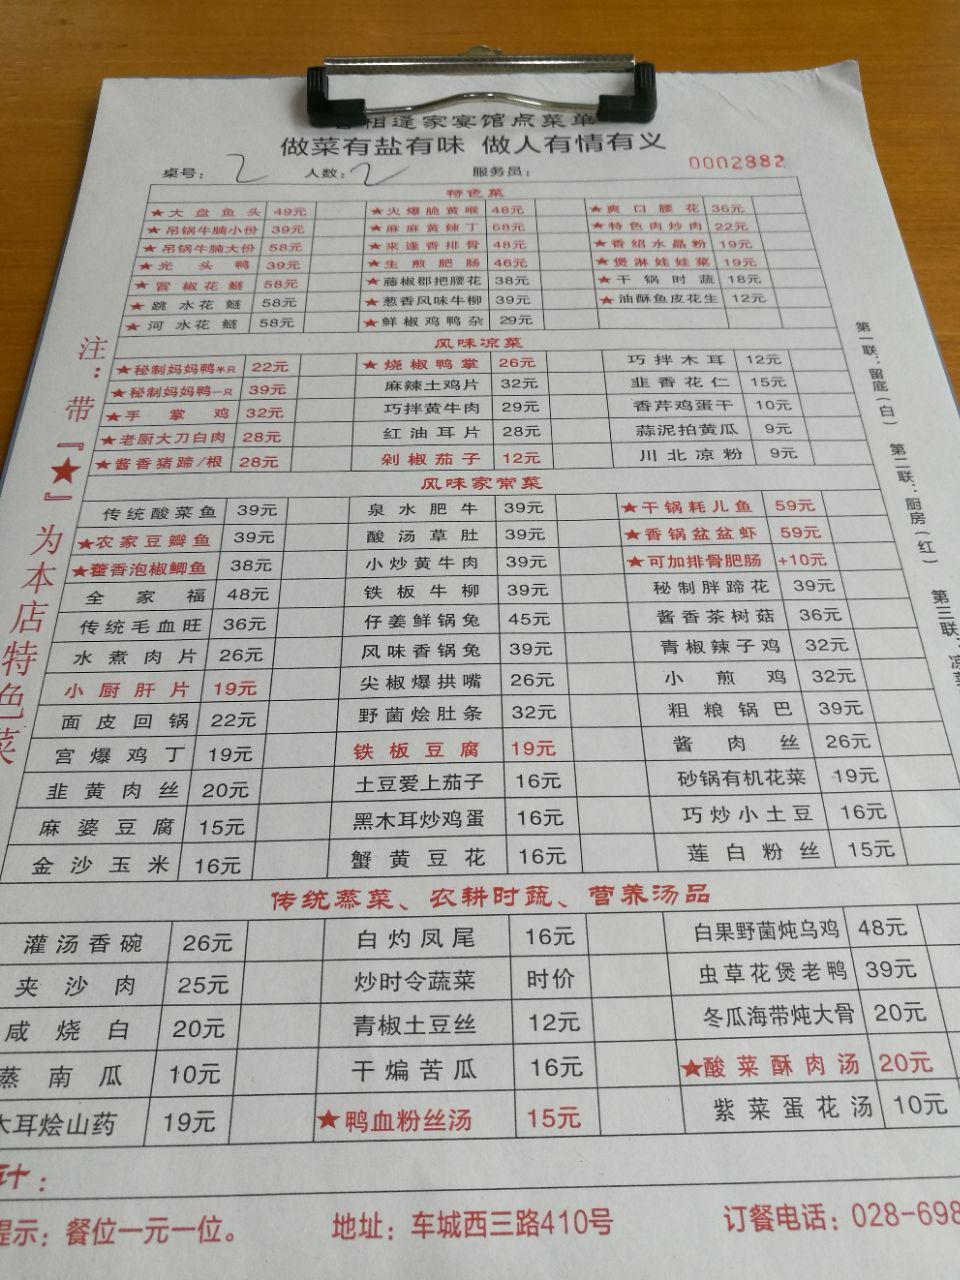 相逢家宴馆点菜单
做菜有盐有味 做人有情有义
桌号: 2 人数: 2 服务员: 0002882
特色菜
★大盘鱼头 49元 ★火爆脆黄喉 48元 ★爽口腰花 36元
★吊锅牛腩小份 39元 ★麻麻黄辣丁 68元 ★特色肉炒肉 22元
★吊锅牛腩大份 58元 ★来逢香排骨 48元 ★香绍水晶粉 19元
★光头鸭 39元 ★生煎肥肠 46元 ★煲淋娃娃菜 19元
★冒椒花鲢 58元 ★藤椒郡把腰花 38元 ★干锅时蔬 18元
★跳水花鲢 58元 ★葱香风味牛柳 39元 ★油酥鱼皮花生 12元
★河水花鲢 58元 ★鲜椒鸡鸭杂 29元
风味凉菜
★秘制妈妈鸭半只 22元 ★烧椒鸭掌 26元 巧拌木耳 12元
★秘制妈妈鸭一只 39元 麻辣土鸡片 32元 韭香花仁 15元
★手掌鸡 32元 巧拌黄牛肉 29元 香芹鸡蛋干 10元
★老厨大刀白肉 28元 红油耳片 28元 蒜泥拍黄瓜 9元
★酱香猪蹄/根 28元 剁椒茄子 12元 川北凉粉 9元
风味家常菜
传统酸菜鱼 39元 泉水肥牛 39元 ★干锅耗儿鱼 59元
★农家豆瓣鱼 39元 酸汤草肚 39元 ★香锅盆盆虾 59元
★藿香泡椒鲫鱼 38元 小炒黄牛肉 39元 ★可加排骨肥肠 +10元
全家福 48元 铁板牛柳 39元 秘制胖蹄花 39元
传统毛血旺 36元 仔姜鲜锅兔 45元 酱香茶树菇 36元
水煮肉片 26元 风味香锅兔 39元 青椒辣子鸡 32元
小厨肝片 19元 尖椒爆拱嘴 26元 小煎鸡 32元
面皮回锅 22元 野菌烩肚条 32元 粗粮锅巴 39元
宫爆鸡丁 19元 铁板豆腐 19元 酱肉丝 26元
韭黄肉丝 20元 土豆爱上茄子 16元 砂锅有机花菜 19元
麻婆豆腐 15元 黑木耳炒鸡蛋 16元 巧炒小土豆 16元
金沙玉米 16元 蟹黄豆花 16元 莲白粉丝 15元
传统蒸菜、农耕时蔬、营养汤品
灌汤香碗 26元 白灼凤尾 16元 白果野菌炖乌鸡 48元
夹沙肉 25元 炒时令蔬菜 时价 虫草花煲老鸭 39元
咸烧白 20元 青椒土豆丝 12元 冬瓜海带炖大骨 20元
蒸南瓜 10元 干煸苦瓜 16元 ★酸菜酥肉汤 20元
木耳烩山药 19元 ★鸭血粉丝汤 15元 紫菜蛋花汤 10元
计:
提示: 餐位一元一位。 地址: 车城西三路410号 订餐电话: 028-698
注: 带『★』为本店特色菜
第一联: 留底(白) 第二联: 厨房(红) 第三联: 凉菜